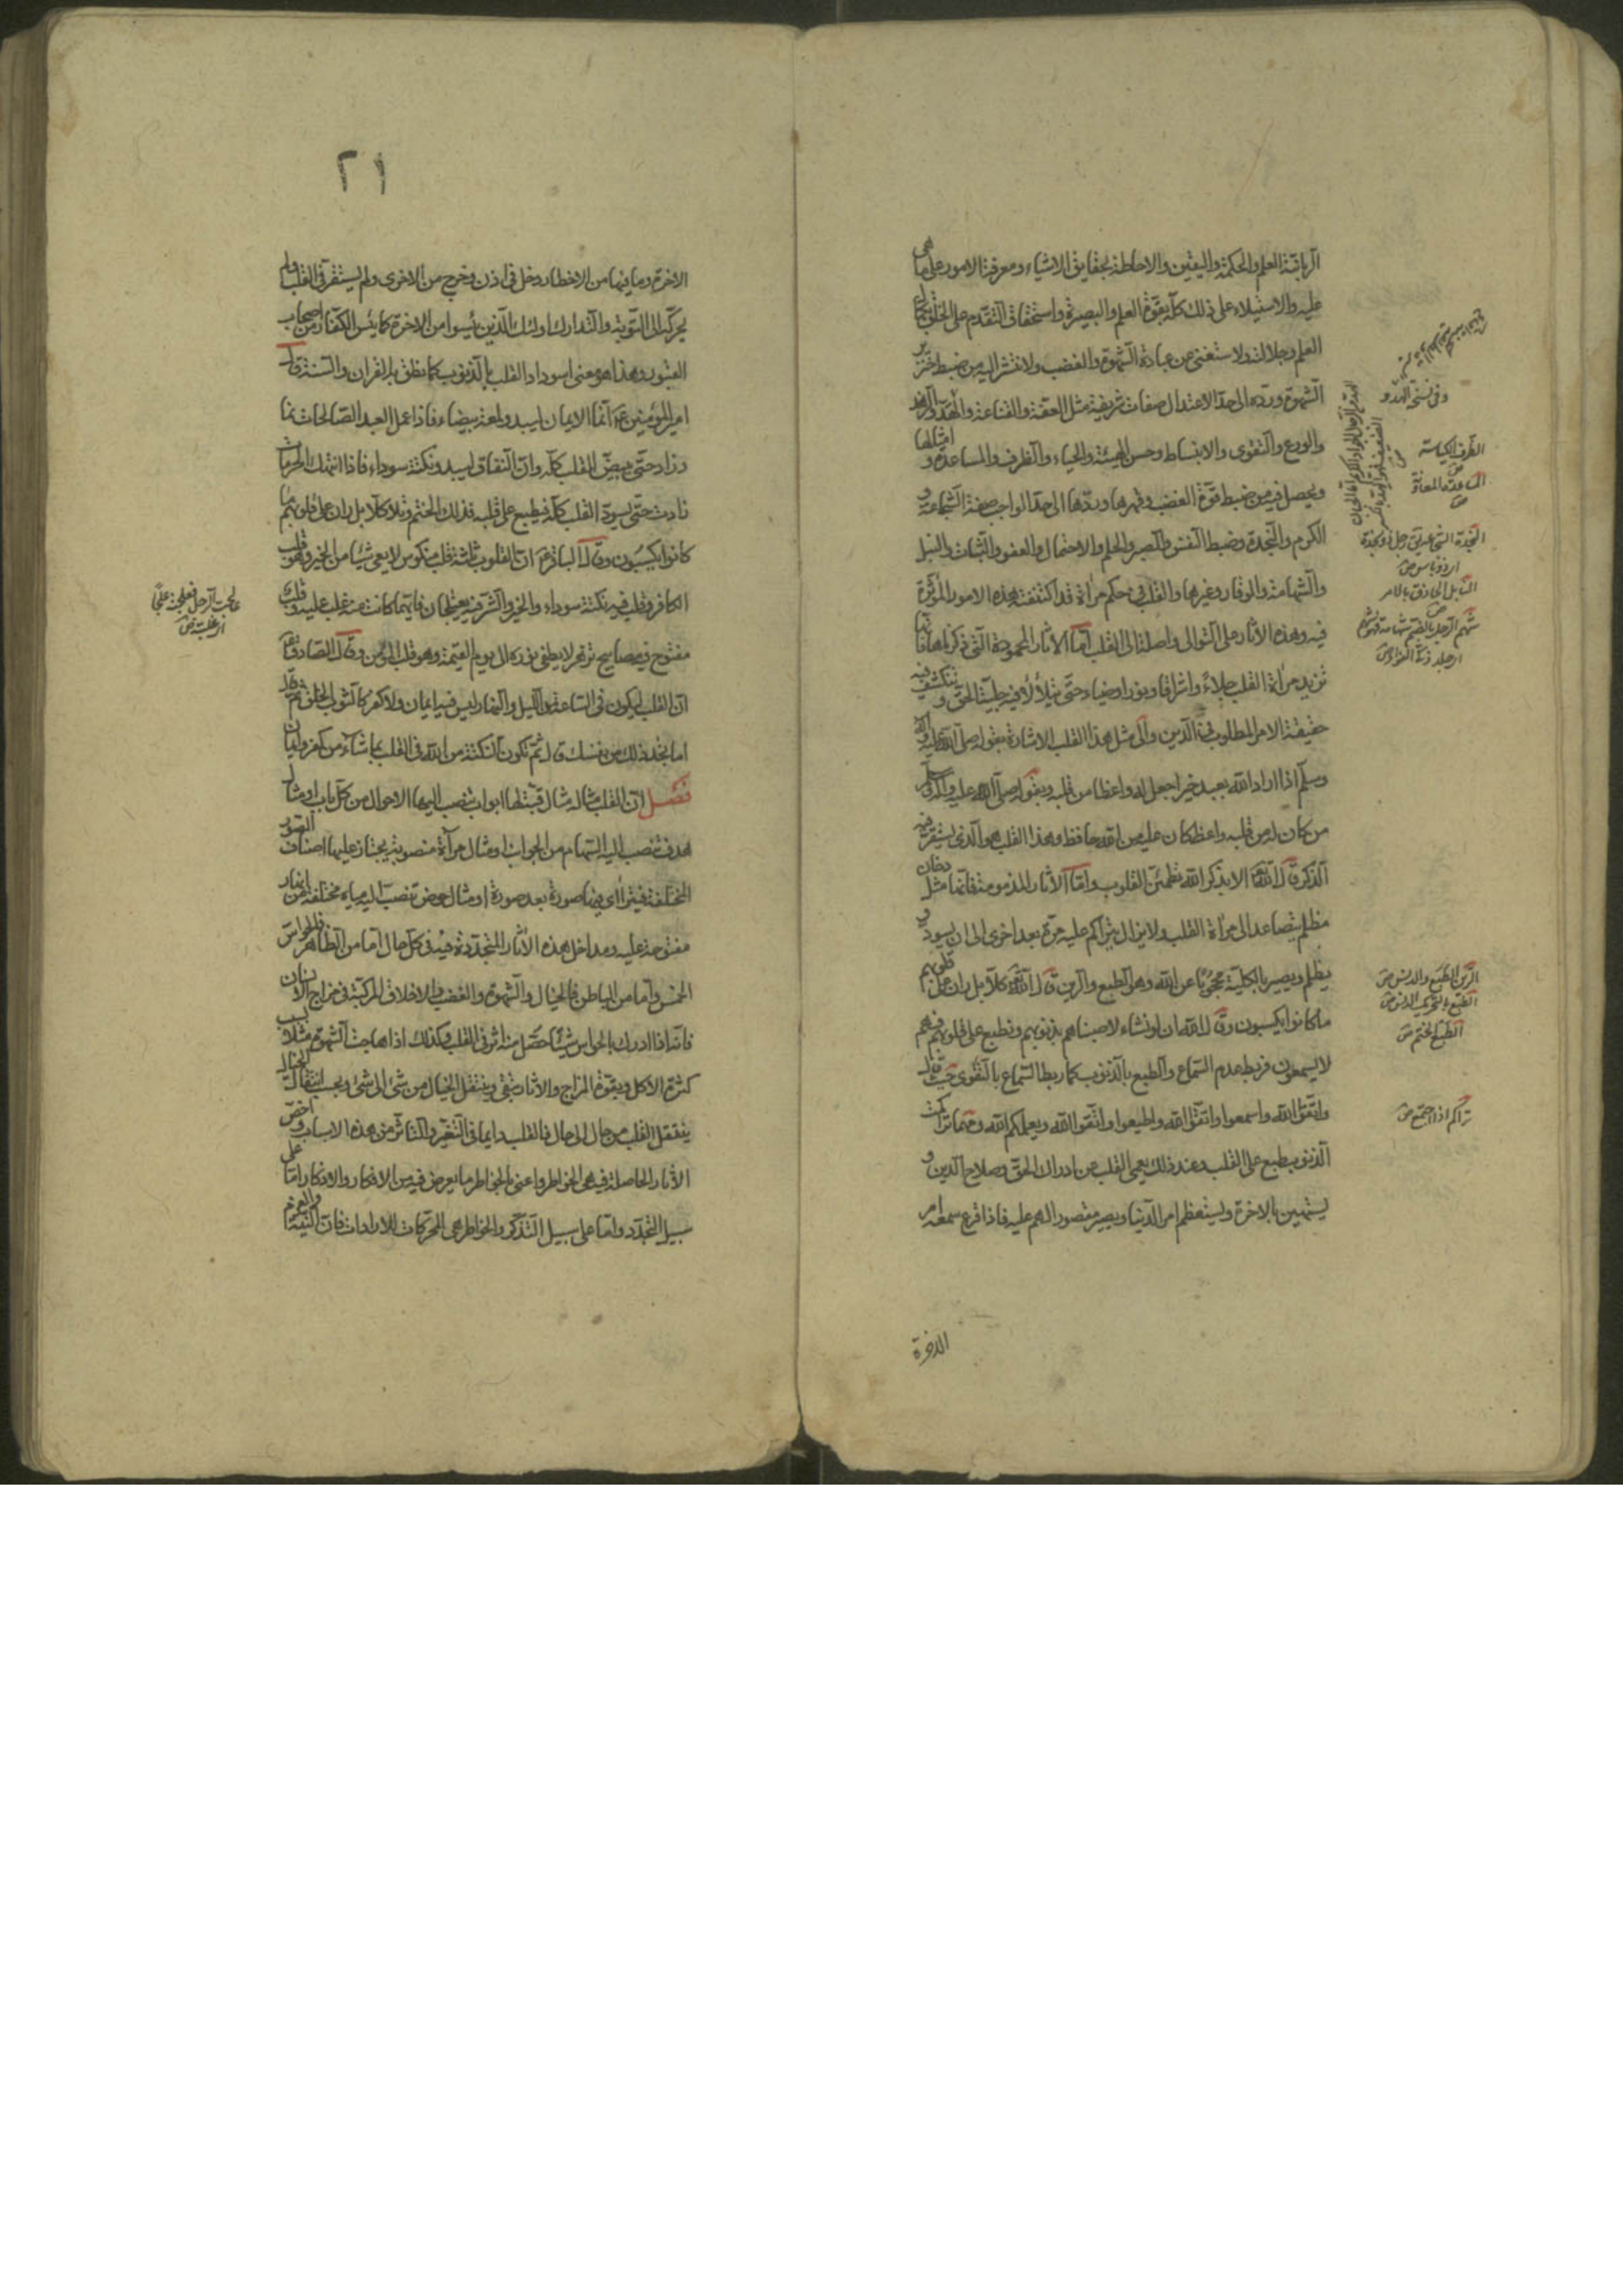 الربانية العلم والحكمة واليقين والاحاطة بحقايق الاشياء ومعرفة الامور على ما هى
عليه والاستيلاء على ذلك كله بقوة العلم والبصيرة واستحقاق التقدم على الخلق بكمال
العلم وجلالته ولاستغنى عن عبادة الشهوة والغضب ولانتشر اليه من ضبط خنزير
الشهوة ورده الى حد الاعتدال صفات شريفة مثل العفة والقناعة والهدو والزهد
والورع والتقوى والانبساط وحسن الهيئة والحياء والظرف والمساعدة وامثالها
ويحصل فيه من ضبط قوة الغضب وقهرها وردها الى حد الواجب صفة الشجاعة و
الكرم والنجدة وضبط النفس والصبر والحلم والاحتمال والعفو والثبات والنبل
والشهامة والوقار وغيرها والقلب فى حكم مراة قد اكتنفته هذه الامور المؤثرة
فيه وهذه الاثار على التوالى واصلة الى القلب اما الاثار المحمودة التى ذكرناها فانها
تزيد مراة القلب جلاءً واشراقا ونورا وضياء حتى يتلألأ فيه جلية الحق وينكشف فيه
حقيقة الامر المطلوب فى الدين والى مثل هذا القلب الاشارة بقوله صلى الله عليه واله
وسلم اذا اراد الله بعبد خيرا جعل له واعظا من قلبه وبقوله صلى الله عليه واله وسلم
من كان له من قلبه واعظ كان عليه من الله حافظ وهذا القلب هو الذى يستقر فيه
الذكر قال الله تعالى الا بذكر الله تطمئن القلوب واما الاثار المذمومة فانها مثل دخان
مظلم يتصاعد الى مراة القلب ولا يزال يتراكم عليه مرة بعد اخرى الى ان يسود و
يظلم ويصير بالكلية محجوبا عن الله وهو الطبع والرين قال الله تعالى كلا بل ران على قلوبهم
ما كانوا يكسبون وقال الله ان لو نشاء لاصبناهم بذنوبهم ونطبع على قلوبهم فهم
لا يسمعون فربط عدم السماع والطبع بالذنوب كما ربط السماع بالتقوى حيث قال
واتقوا الله واسمعوا واتقوا الله واطيعوا واتقوا الله ويعلمكم الله ومهما تراكمت
الذنوب طبع على القلب وعند ذلك يعمى القلب عن ادراك الحق وصلاح الدين و
يستهين بالاخرة ويستعظم امر الدنيا ويصير مقصور الهم عليه فاذا قرع سمعه امر
الاخرة
وفى نسخة الهدو
الظرف الكياسة ص
المساعدة المعاونة ص
النجدة الشجاعة
النابل الحاذق بالامر ص
الرين الطبع والدنس ص
الطبع بالتحريك الدنس ص
الطبع الختم ص
تراكم اذا اجتمع ص
٢١
الاخرة وما فيها من الاخطار دخل فى اذن وخرج من الاخرى ولم يستقر فى القلب ولم
يحركه الى التوبة والتدارك اولئك الذين يئسوا من الاخرة كما يئس الكفار من اصحاب
القبور وهذا هو معنى اسوداد القلب بالذنوب كما نطق به القران والسنة قال
امير المؤمنين ع انما الايمان ليبدو لمعة بيضاء فاذا عمل العبد الصالحات نما
وزاد حتى يبيض القلب كله وان النفاق ليبدو نكتة سوداء فاذا انتهك الحرمات
زادت حتى يسود القلب كله فيطبع على قلبه فذلك الختم وتلا كلا بل ران على قلوبهم ما
كانوا يكسبون وقال الباقر ع ان القلوب ثلثة قلب منكوس لا يعى شيئا من الخير وهو قلب
الكافر وقلب فيه نكتة سوداء والخير والشر فيه يعتلجان فايهما كانت منه غلب عليه وقلب
مفتوح فيه مصابيح تزهر لا يطفى نوره الى يوم القيمة وهو قلب المؤمن وقال الصادق ع
ان القلب ليكون فى الساعة من الليل والنهار ليس فيه ايمان ولا كفر كالثوب الخلق ثم قال
اما تجد ذلك من نفسك قال ثم تكون النكتة من الله فى القلب بما شاء من كفر وايمان
فصل ان القلب مثاله مثال قبة لها ابواب تنصب اليها الاحوال من كل باب او مثال
هدف تنصب اليه السهام من الجوانب او مثال مرآة منصوبة يجتاز عليها اصناف الصور
المختلفة فيترااى فيها صورة بعد صورة او مثال حوض تنصب اليه مياه مختلفة من انهار
مفتوحة عليه ومداخل هذه الاثار المتجددة فيه فى كل حال اما من الظاهر فالحواس
الخمس واما من الباطن فالخيال والشهوة والغضب والاخلاق المركبة فى مزاج الانسان
فانه اذا ادرك بالحواس شيئا حصل منه اثر فى القلب وكذلك اذا هاجت الشهوة مثلا بسبب
كثرة الاكل وبقوة المزاج والاثار تبقى وينتقل الخيال من شئ الى شئ وبحسب انتقال الخيال
ينتقل القلب من حال الى حال فالقلب دايما فى التغير والتاثر من هذه الاسباب واخص
الاثار الحاصلة فيه هى الخواطر واعنى بالخواطر ما يعرض فيه من الافكار والاذكار اما على
سبيل التجدد واما على سبيل التذكر والخواطر هى المحركات للارادات فان النية والعزم